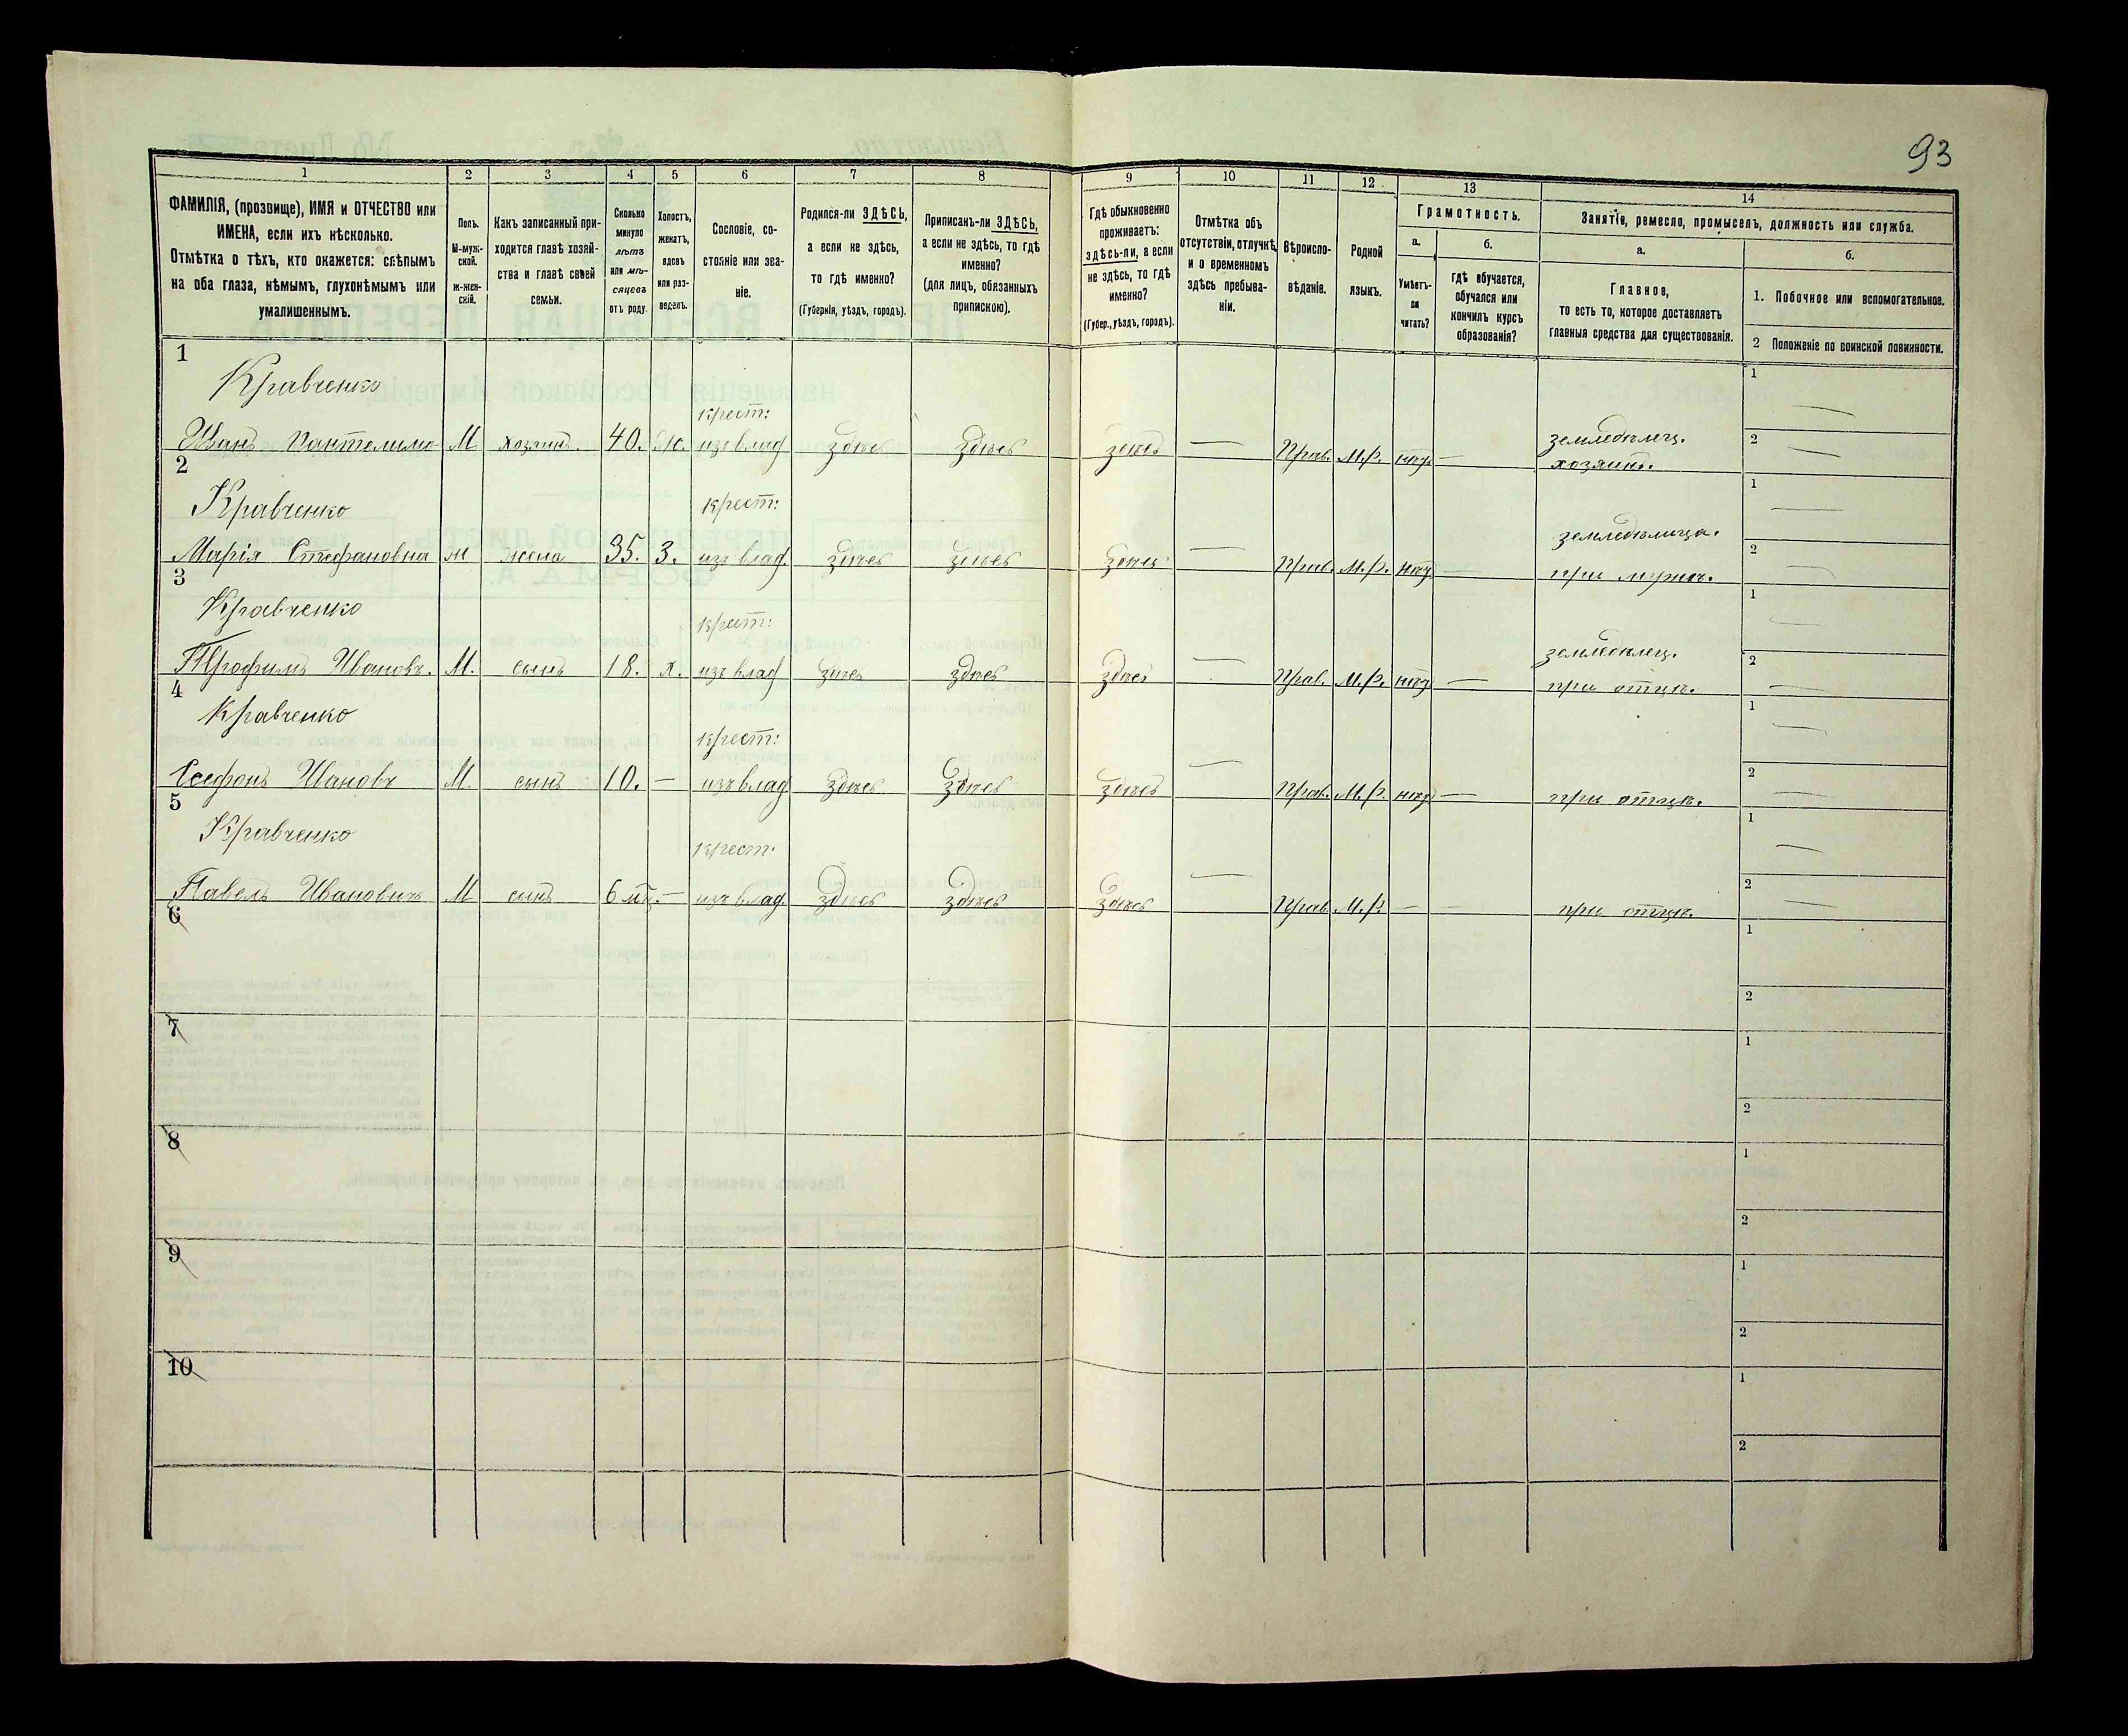 93
1 2 3 4 5 6 7 8 9 10 11 12 13 14
ФАМИЛІЯ, (прозвище), ИМЯ и ОТЧЕСТВО или ИМЕНА, если ихъ нѣсколько.
Отмѣтка о тѣхъ, кто окажется: слѣпымъ на оба глаза, нѣмымъ, глухонѣмымъ или умалишеннымъ.
Полъ.
М-мужской.
Ж-женскій.
Какъ записанный приходится главѣ хозяйства и главѣ своей семьи.
Сколько минуло лѣтъ или мѣсяцевъ отъ роду.
Холостъ, женатъ, вдовъ или разведенъ.
Сословіе, состояніе или званіе.
Родился-ли ЗДѢСЬ, а если не здѣсь, то гдѣ именно?
(Губернія, уѣздъ, городъ).
Приписанъ-ли ЗДѢСЬ, а если не здѣсь, то гдѣ именно?
(для лицъ, обязанныхъ припискою).
Гдѣ обыкновенно проживаетъ: здѣсь-ли, а если не здѣсь, то гдѣ именно?
(Губер., уѣздъ, городъ).
Отмѣтка объ отсутствіи, отлучкѣ и о временномъ здѣсь пребываніи.
Вѣроисповѣданіе.
Родной языкъ.
Грамотность.
а.
Умѣетъ-ли читать?
б.
гдѣ обучается, обучался или кончилъ курсъ образованія?
Занятія, ремесло, промыселъ, должность или служба.
а.
Главное,
то есть то, которое доставляетъ главныя средства для существованія.
б.
1. Побочное или вспомогательное.
2 Положеніе по воинской повинности.
1
Кравченко
крест:
Иванъ Пантелимо М хозяинъ. 40. ж. изъ влад здѣсь здѣсь здѣсь — Прав. М.р. нѣтъ — земледѣлец. хозяинъ.
1 —
2 —
2
Кравченко
крест:
Марія Стефановна ж жена 35. З. изъ влад. здѣсь здѣсь здѣсь — Прав. М.р. нѣтъ — земледѣлица. при мужѣ.
1 —
2 —
3
Кравченко
крест:
Трофимъ Ивановъ. М. сынъ 18. х. изъ влад здѣсь здѣсь здѣсь — Прав. М.р. нѣтъ — земледѣлец. при отцѣ.
1 —
2 —
4
Кравченко
крест:
Ивановъ М. сынъ 10. — изъ влад здѣсь здѣсь здѣсь — Прав. М.р. нѣтъ — при отцѣ.
1 —
2 —
5
Кравченко
крест:
Павелъ Ивановичъ М сынъ 6 мц. — изъ влад здѣсь здѣсь здѣсь — Прав. М.р. — — при отцѣ.
1 —
2 —
6
1
2
7
1
2
8
1
2
9
1
2
10
1
2